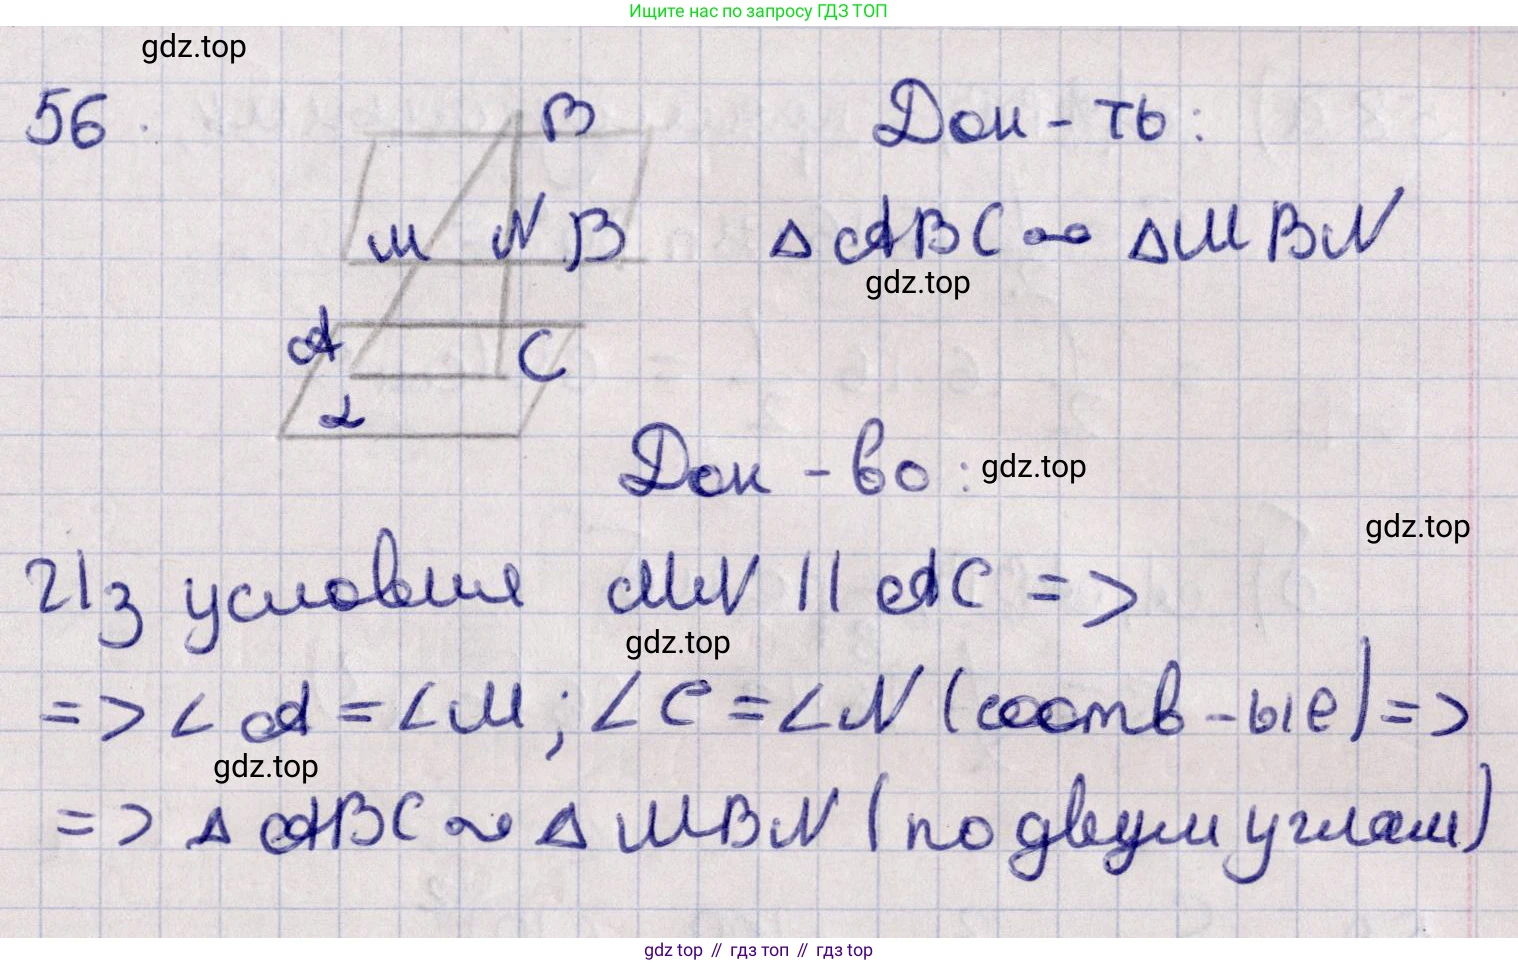 Ищите нас по запросу ГДЗ ТОП
gdz.top
56.
B
Док-ть:
M N β
△ABC ∾ △MBN
gdz.top
A C
α
Док-во:
gdz.top
gdz.top
Из условия MN || AC =>
gdz.top
=> ∠A = ∠M; ∠C = ∠N (соотв-ые) =>
gdz.top
=> △ABC ∾ △MBN (по двум углам)
gdz top // гдз топ // гдз top